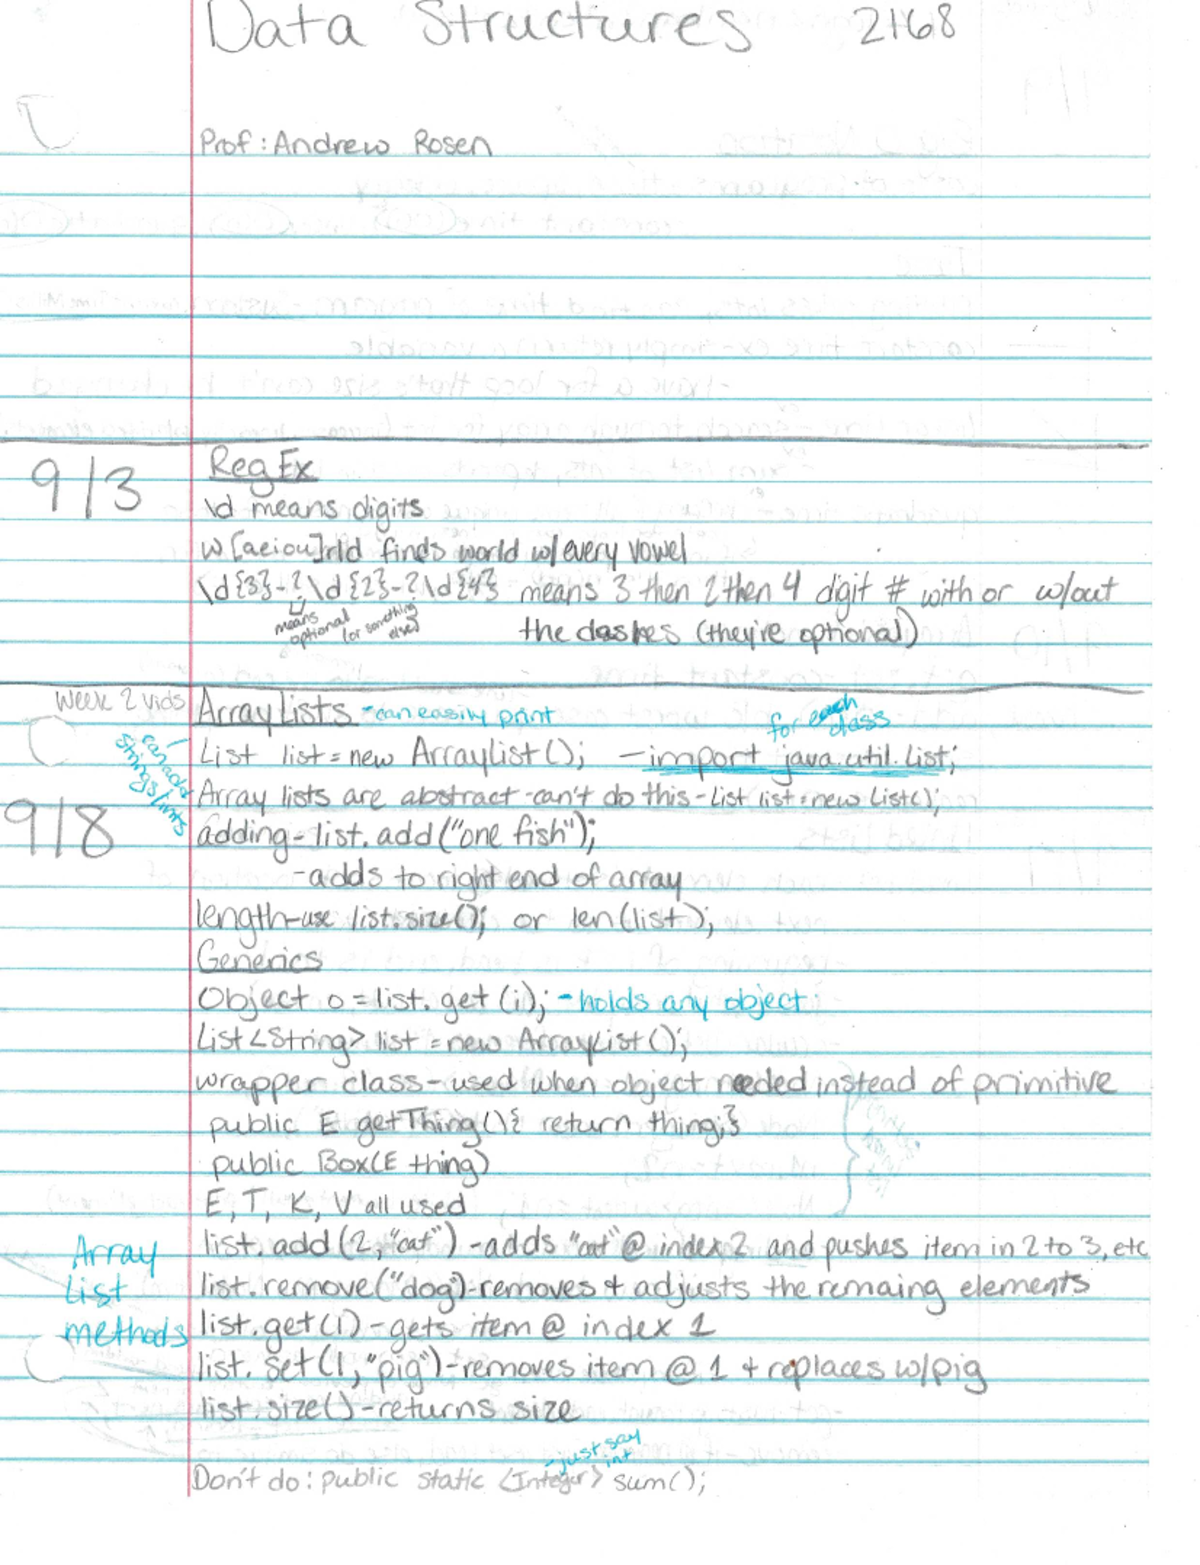 Data Structures 2168
Prof: Andrew Rosen
9/3
RegEx
\d means digits
w[aeiou]rld finds world w/every vowel
\d{3}-?\d{2}-?\d{4} means 3 then 2 then 4 digit # with or w/out
means optional (or something else)
the dashes (they're optional)
Week 2 vids
ArrayLists -can easily print
for each class
List list = new ArrayList(); - import java.util.List;
can add strings/ints
Array lists are abstract - can't do this - List list = new List();
9/8
adding - list.add("one fish");
-adds to right end of array
length - use list.size(); or len(list);
Generics
Object o = list.get(i); - holds any object
List<String> list = new ArrayList();
wrapper class - used when object needed instead of primitive
public E getThing(){ return thing;}
public Box(E thing)
E, T, K, V all used
Array List methods
list.add(2,"cat") -adds "cat" @ index 2 and pushes item in 2 to 3, etc
list.remove("dog")-removes + adjusts the remaing elements
list.get(1) - gets item @ index 1
list.set(1,"pig")-removes item @ 1 + replaces w/pig
list.size() - returns size
-just say int
Don't do: public static <Integer> sum();